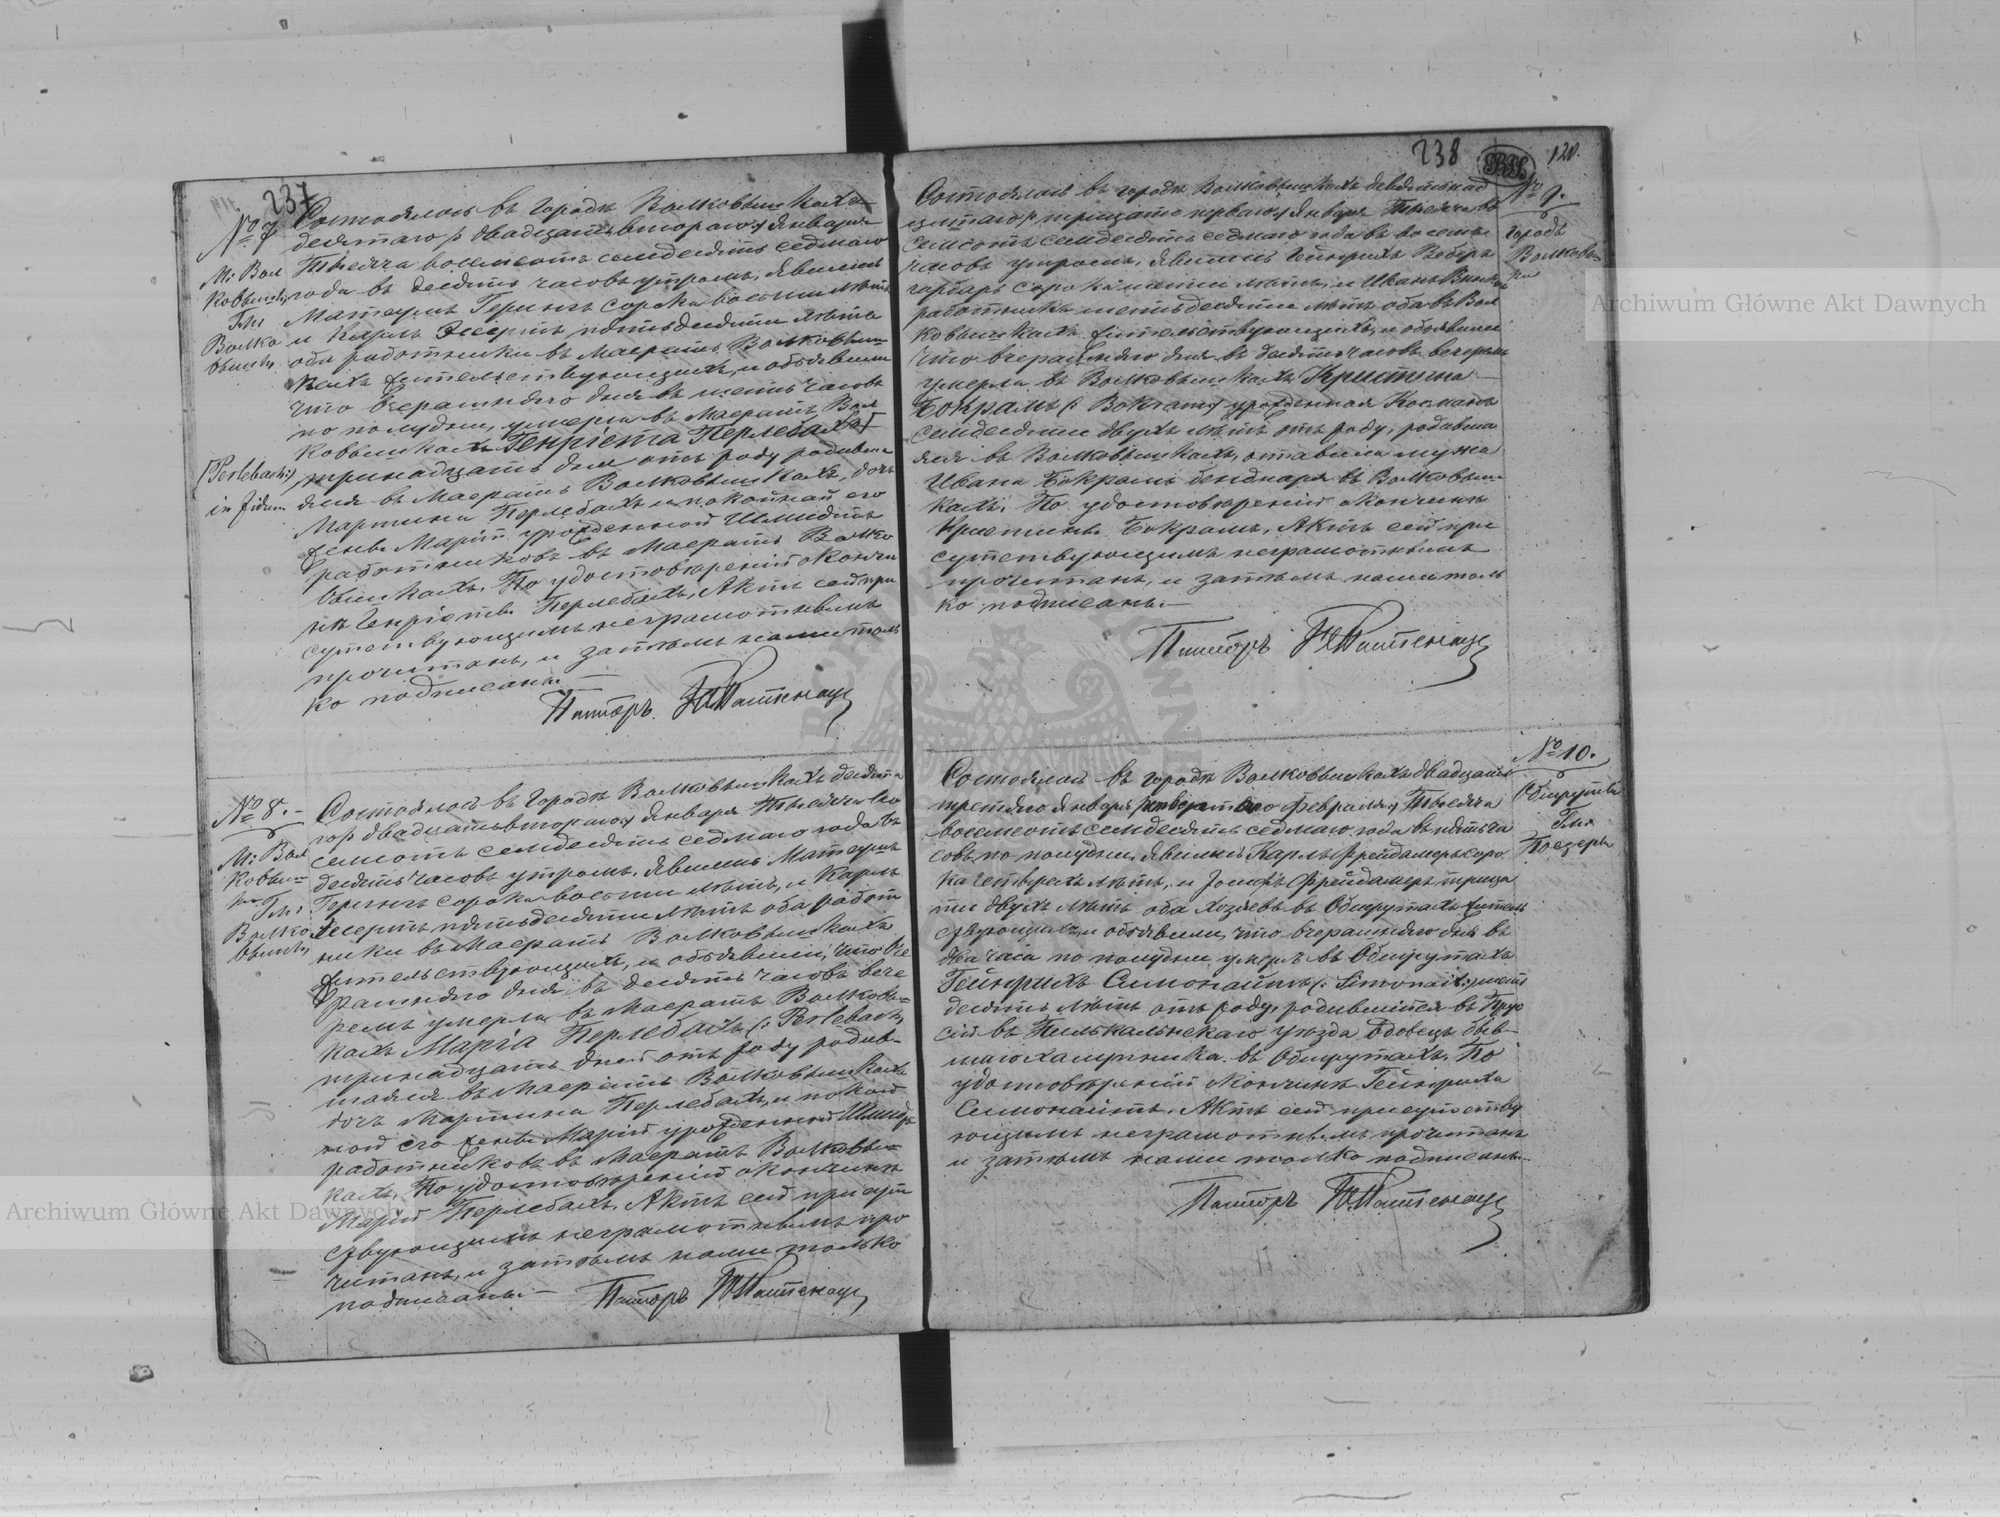 237
№ 7
М: Вол
ковыш,
Гм:
Волко
выш,
[Perlebach:]
in fidem
Состоялось въ городѣ Волковышкахъ
десятаго /: двадцать втораго:/ Января
Тысяча восемсотъ семдесятъ седмаго
года въ десять часовъ утромъ, явились
Матеушъ Герингъ сорока восьми лѣтъ
и Карлъ пятьдесяти лѣтъ
оба работники въ Маератъ Волковыш
кахъ жительствующихъ, и объявили
что вчерашняго дня въ шесть часовъ
по полудни, умерла въ Маератъ Вол
ковышкахъ Генріета Перлебахъ
тринадцать дня отъ роду родивша
яся въ Маератъ Волковышкахъ, дочь
Мартина Перлебахъ и покойной его
жены Маріи урожденной Шмидтъ
работниковъ въ Маератъ Волко
вышкахъ. По удостовѣреніи о кончи
нѣ Генріеты Перлебахъ, Актъ сей при
сутствующимъ неграмотнымъ
прочитанъ, и затѣмъ нами толь
ко подписанъ.—
Пасторъ
№ 8.
М: Вол
ковыш
ки Гм:
Волко
выш,
Состоялось въ городѣ Волковышкахъ десята
го /: двадцать втораго:/ Января Тысяча во
семсотъ семдесятъ седмаго года въ
десять часовъ утромъ, явились Матеушъ
Герингъ сорока восьми лѣтъ, и Карлъ
пятьдесяти лѣтъ оба работ
ники въ Маератъ Волковышкахъ
жительствующихъ, и объявили, что вче
рашняго дня въ десять часовъ вече
ромъ умерла въ Маератъ Волковыш
кахъ Марія Перлебахъ (: Perlebach:)
тринадцать дней отъ роду родив
шаяся въ Маератъ Волковышкахъ
дочь Мартина Перлебахъ, и покой
ной его жены Маріи урожденной Шмидтъ
работниковъ въ Маератъ Волковыш
кахъ. По удостовѣреніи о кончинѣ
Маріи Перлебахъ, Актъ сей присут
ствующимъ неграмотнымъ про
читанъ, и затѣмъ нами только
подписанъ.—
Пасторъ
238
120.
№ 9.
городъ
Волковыш
ки
Состоялось въ городѣ Волковышкахъ девятнад
цатаго /: тридцать перваго:/ Января Тысяча во
семсотъ семдесятъ седмаго года въ восемь
часовъ утромъ, явились Гейнрихъ Веберъ
сорока лѣтъ, и Иванъ
работникъ шестьдесяти лѣтъ оба въ Вол
ковышкахъ жительствующихъ, и объявили
что вчерашняго дня въ десять часовъ вечеромъ
умерла въ Волковышкахъ Кристина
Бокрамъ (: Bokram:) урожденная Косманъ
семидесяти двухъ лѣтъ отъ роду, родивша
яся въ Волковышкахъ, оставила мужа
Ивана Бокрамъ бендаря въ Волковыш
кахъ. По удостовѣреніи о кончинѣ
Кристины Бокрамъ, Актъ сей при
сутствующимъ неграмотнымъ
прочитанъ, и затѣмъ нами толь
ко подписанъ.—
Пасторъ
№ 10.
Обшруты
Гм:
Поезеры
Состоялось въ городѣ Волковышкахъ двадцать
третьяго Января /: четвертаго Февраля:/ Тысяча
восемсотъ семдесятъ седмаго года въ пять ча
совъ по полудни, явились Карлъ Фрейдамеръ соро
ка четырехъ лѣтъ, и Іосифъ Фрейдамеръ тридца
ти двухъ лѣтъ оба хозяевъ въ Обшрутахъ житель
ствующихъ, и объявили, что вчерашняго дня въ
два часа по полудни умеръ въ Обшрутахъ
Гейнрихъ Симонайтъ (: Simonait:) шест
десятъ лѣтъ отъ роду, родившійся въ Прус
сіи въ Пилькальнскаго уѣзда вдовецъ быв
шаго халупника въ Обшрутахъ. По
удостовѣреніи о кончинѣ Гейнриха
Симонайтъ, Актъ сей присутству
ющимъ неграмотнымъ прочитанъ
и затѣмъ нами только подписанъ.—
Пасторъ
Archiwum Główne Akt Dawnych
Archiwum Główne Akt Dawnych